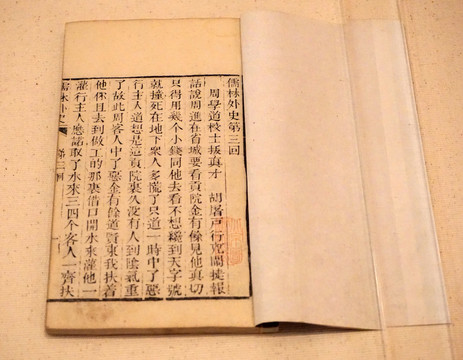 儒林外史第三回
周學道校士拔真才　胡屠戶行兇鬧捷報
話說周進在省城要看貢院金有餘見他真切
只得用幾個小錢同他去看不想纔到天字號
就撞死在地下衆人多慌了只道一時中了惡
行主人道想是這貢院裏久沒有人到陰氣重
了故此周客人中了惡金有餘道賢東我扶着
他你且去到做工的那裏借口開水來灌他一
灌行主人應諾取了水來三四個客人一齊扶
儒林外史　第三回